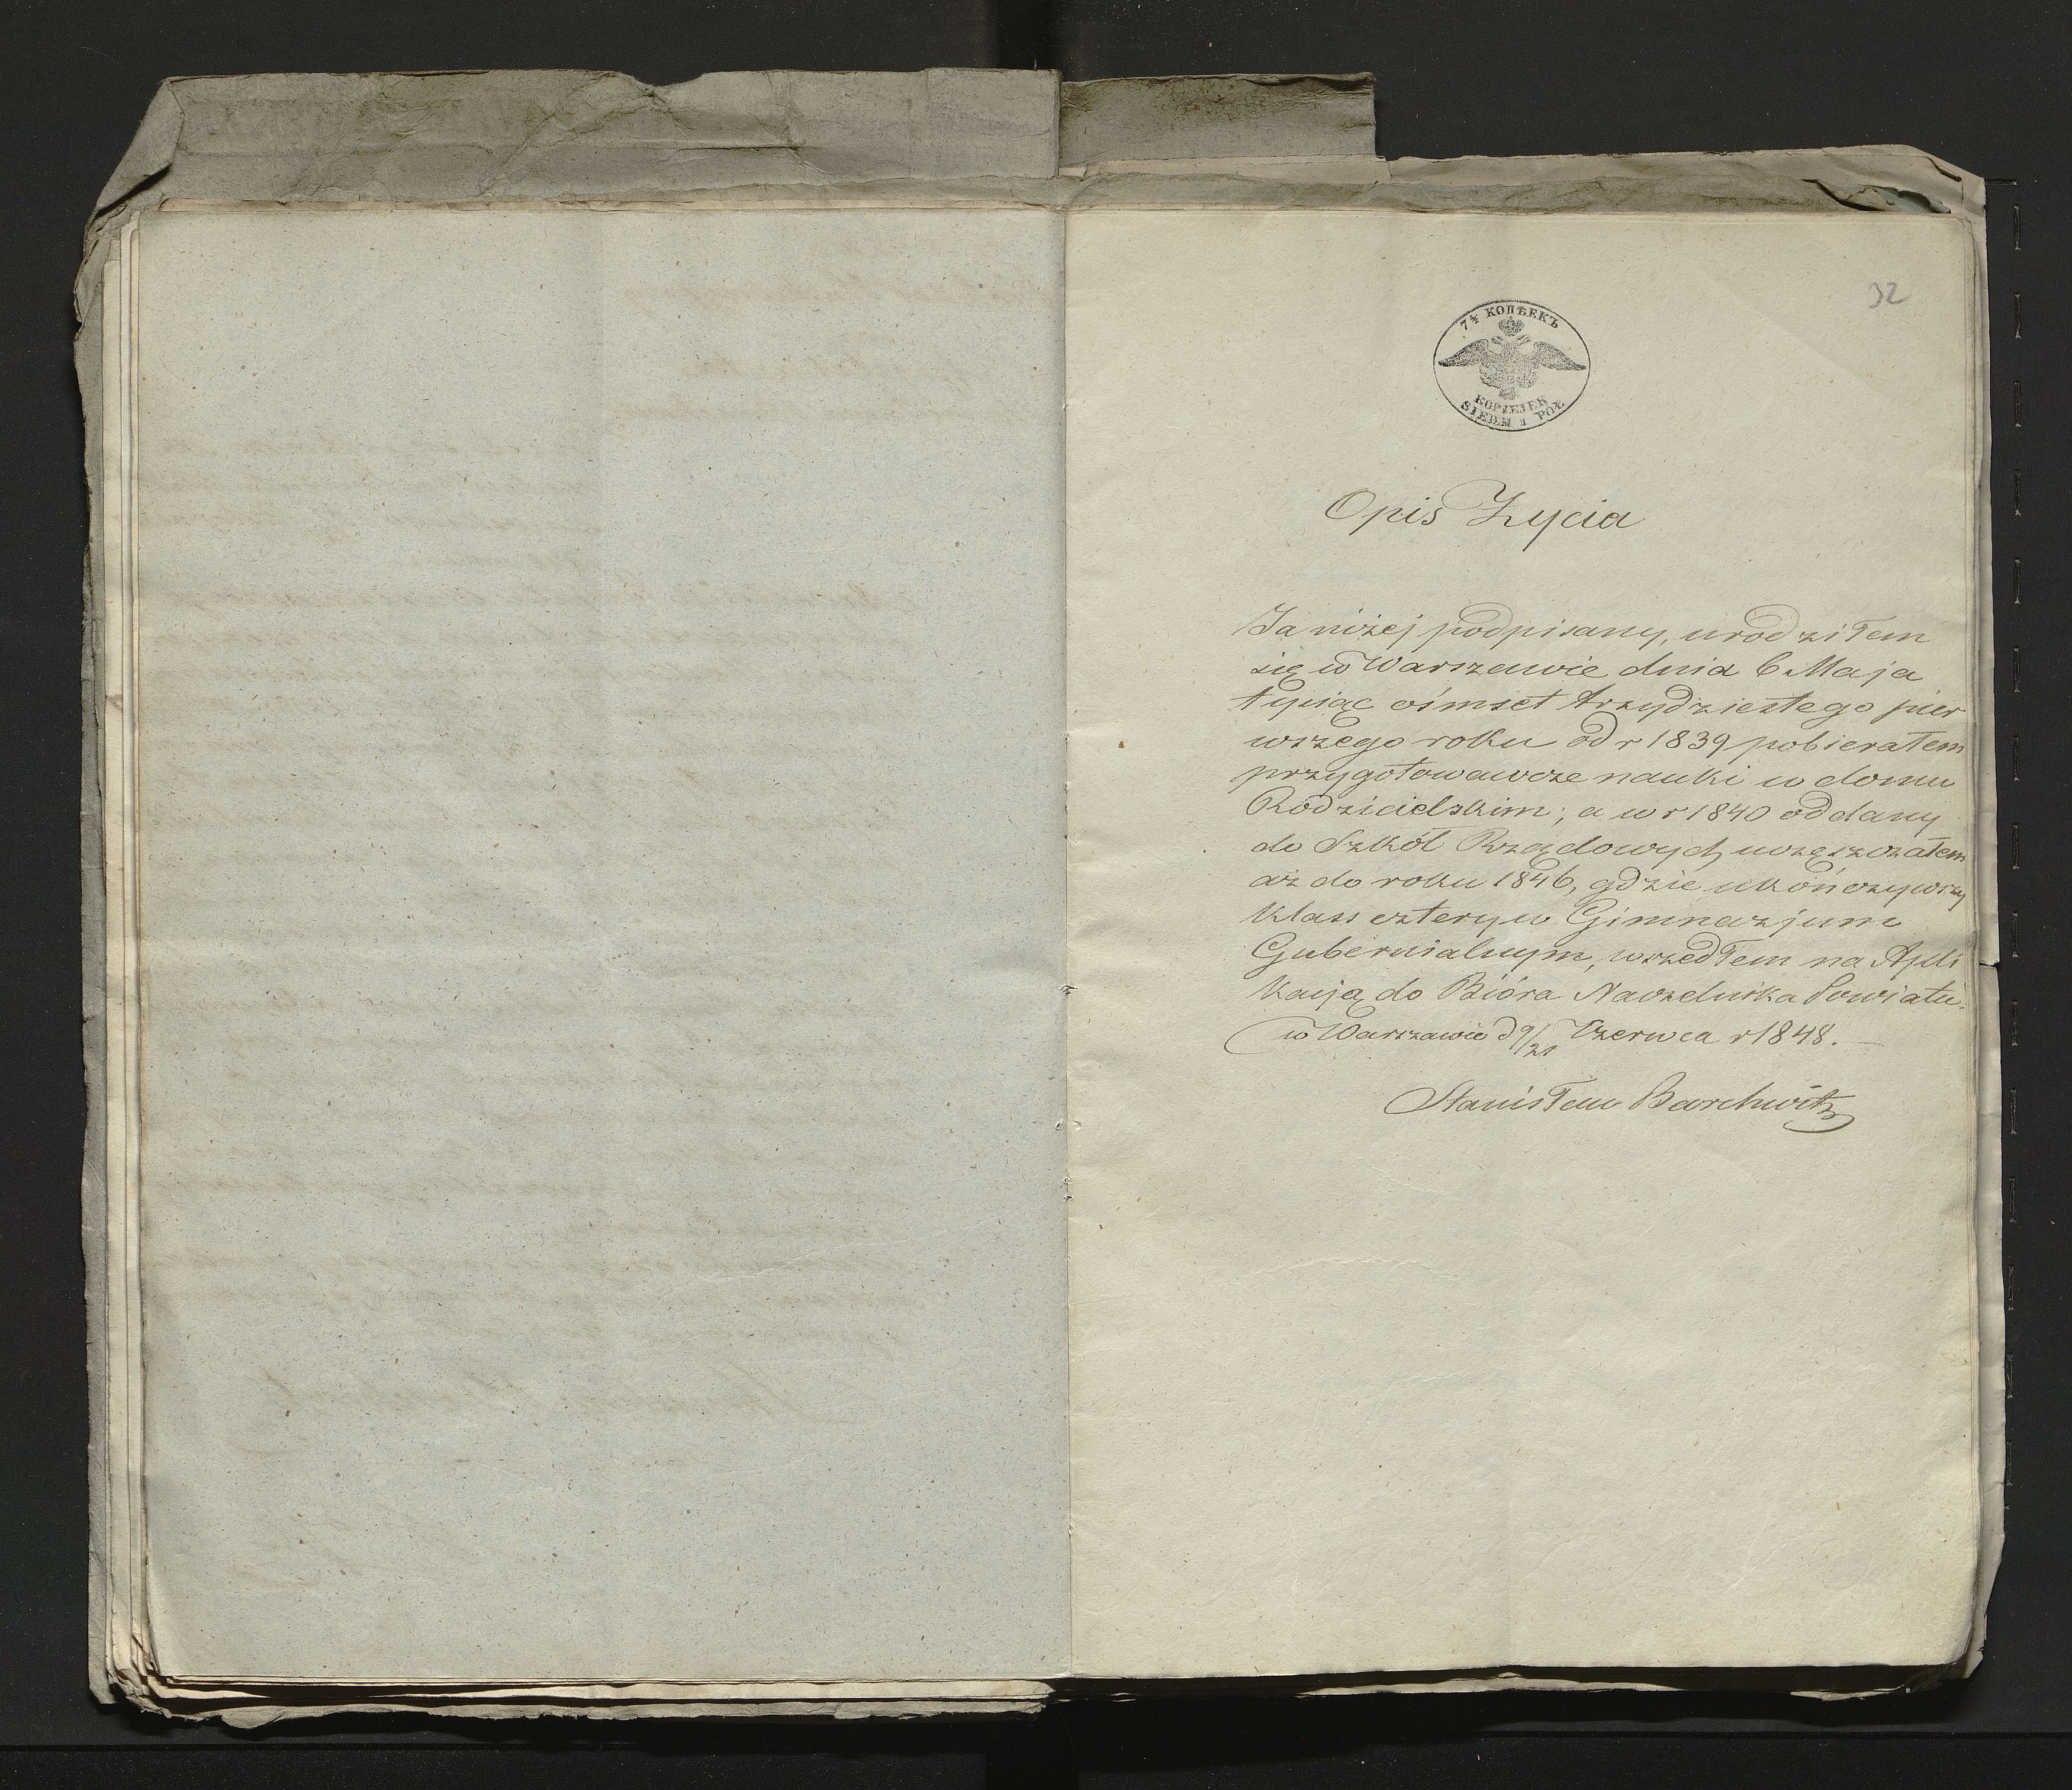 32
7½ КОПѢЕКЪ
KOPIEJEK
SIEDM I PÓŁ
Opis Życia
Ja niżej podpisany, urodziłem
się w Warszawie dnia 6 Maja
tysiąc ośmset trzydziestego pier
wszego roku od r 1839 pobierałem
przygotowawcze nauki w domu
Rodzicielskim; a w r 1840 oddany
do Szkół Rządowych uczęszczałem
aż do roku 1846, gdzie ukończywszy
klass cztery w Gimnazjum
Gubernialnym, wszedłem na Apli
kacją do Bióra Naczelnika Powiatu.
w Warszawie d 9/21 Czerwca r 1848. —
Stanisław Barchwitz